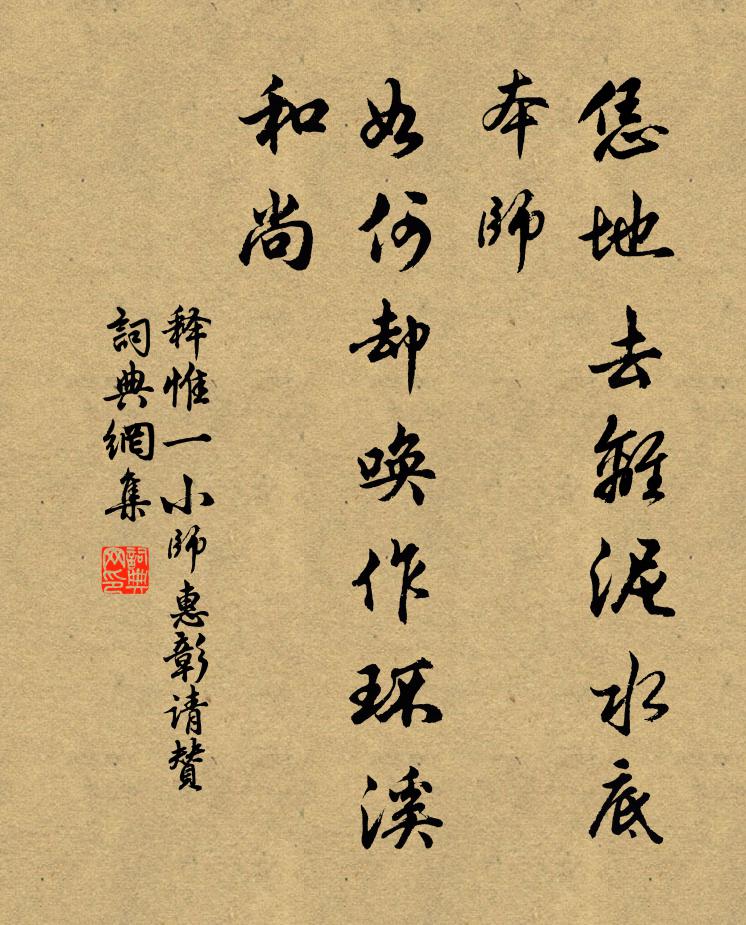 恁地去離泥水底
本師
如何却喚作环溪
和尚
释惟一小師惠彰请賛
詞典網集
詞典网印